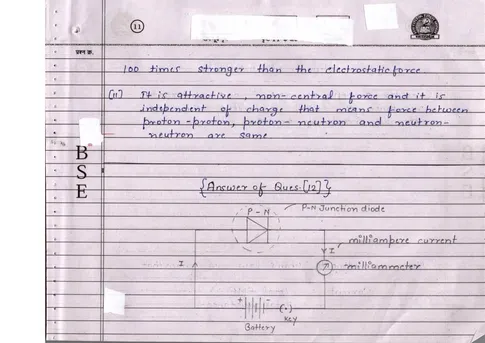 11
प्रश्न क्र.
100 times stronger than the electrostatic force.
(ii) It is attractive, non-central force and it is
independent of charge that means force between
proton-proton, proton-neutron and neutron-
neutron are same
B
S
E
{Answer of Ques. [12]}
P-N
P-N Junction diode
milliampere current
I
I
milliammeter
+ -
(•)
Key
Battery